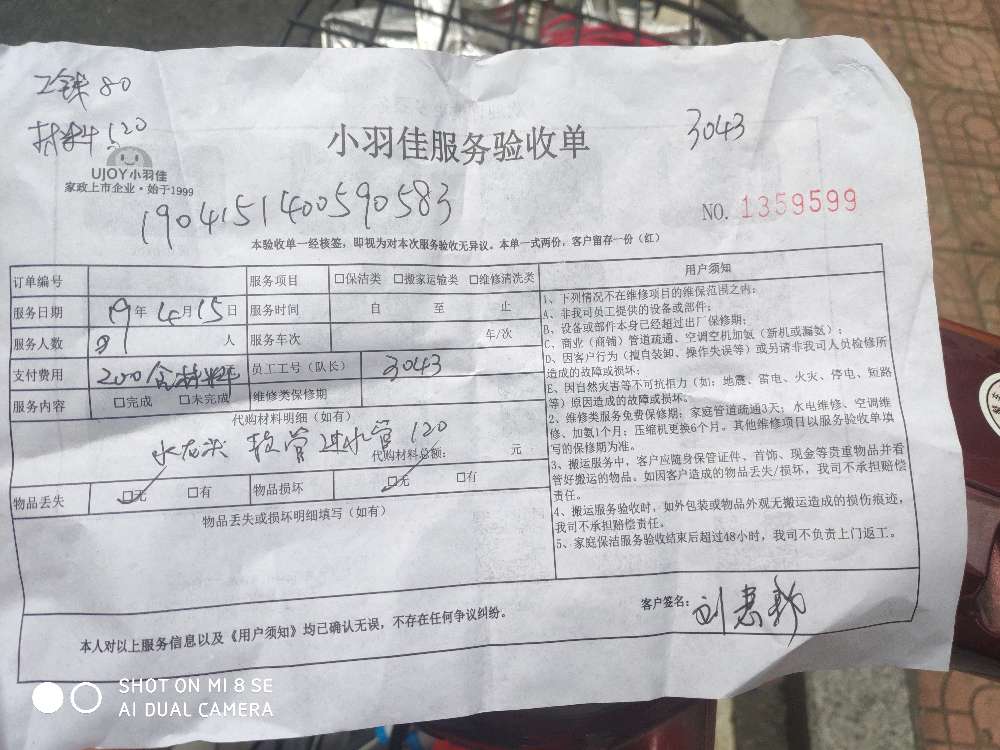 工钱80
材料120
UJOY小羽佳
家政上市企业·始于1999
小羽佳服务验收单
3043
190415140059​0583
NO. 1359599
本验收单一经核签，即视为对本次服务验收无异议。本单一式两份，客户留存一份（红）
订单编号 服务项目 □保洁类 □搬家运输类 □维修清洗类
服务日期 19年4月15日 服务时间 自 至 止
服务人数 人 服务车次 车/次
支付费用 200含材料 员工工号（队长） 3043
服务内容 □完成 □未完成 维修类保修期
代购材料明细（如有）
水龙头 软管 进水管 120
代购材料总额： 元
物品丢失 □无 □有 物品损坏 □无 □有
物品丢失或损坏明细填写（如有）
用户须知
1、下列情况不在维修项目的维保范围之内：
A、非我司员工提供的设备或部件；
B、设备或部件本身已经超过出厂保修期；
C、商业（商铺）管道疏通、空调空机加氨（新机或漏氨）；
D、因客户行为（擅自装卸、操作失误等）或另请非我司人员检修所
造成的故障或损坏；
E、因自然灾害等不可抗拒力（如：地震、雷电、火灾、停电、短路
等）原因造成的故障或损坏。
2、维修类服务免费保修期：家庭管道疏通3天；水电维修、空调维
修、加氨1个月；压缩机更换6个月。其他维修项目以服务验收单填
写的保修期为准。
3、搬运服务中，客户应随身保管证件、首饰、现金等贵重物品并看
管好搬运的物品。如因客户造成的物品丢失/损坏，我司不承担赔偿
责任。
4、搬运服务验收时，如外包装或物品外观无搬运造成的损伤痕迹，
我司不承担赔偿责任。
5、家庭保洁服务验收结束后超过48小时，我司不负责上门返工。
本人对以上服务信息以及《用户须知》均已确认无误，不存在任何争议纠纷。
客户签名：刘惠
SHOT ON MI 8 SE
AI DUAL CAMERA